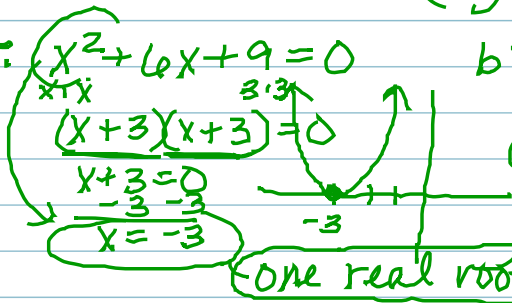 x² + 6x + 9 = 0
b
x · x
3 · 3
(x + 3)(x + 3) = 0
x + 3 = 0
- 3 - 3
x = -3
-3
one real roo